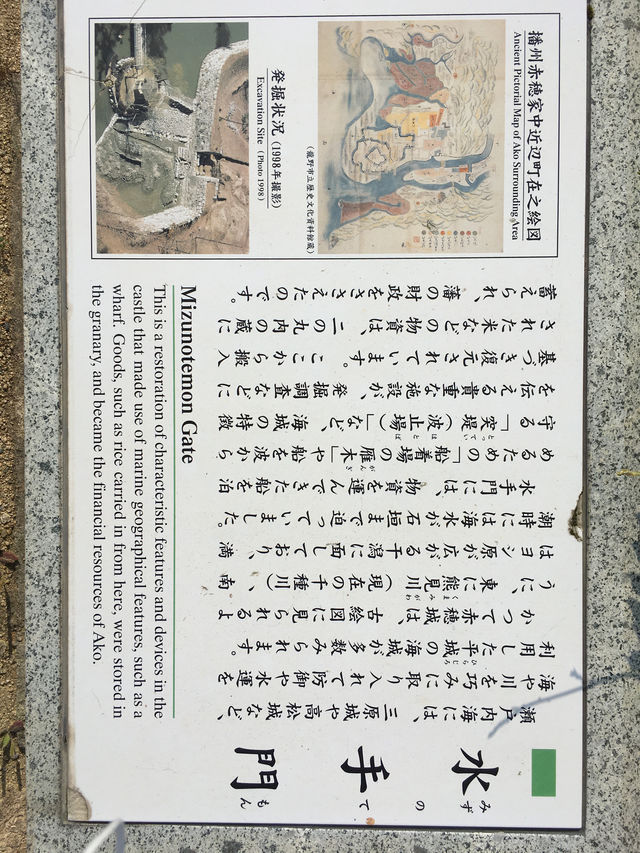 水手門
みずのてもん
瀬戸内海には、三原城や高松城など、
海や川を巧みに取り入れて防御や水運を
利用した平城の海城が多数みられます。
かつて赤穂城は、古絵図に見られるよ
うに、東に熊見川（現在の千種川）、南
はヨシ原が広がる干潟に面しており、満
潮時には海水が石垣まで迫っていました。
水手門には、物資を運んできた船を泊
めるための「船着場の雁木」や船を波から
守る「突堤（波止場）」など、海城の特徴
を伝える貴重な施設が、発掘調査などに
基づき復元されています。ここから搬入
された米などの物資は、二の丸内の蔵に
蓄えられ、藩の財政をささえたのです。
Mizunotemon Gate
This is a restoration of characteristic features and devices in the
castle that made use of marine geographical features, such as a
wharf. Goods, such as rice carried in from here, were stored in
the granary, and became the financial resources of Ako.
播州赤穂家中近辺町在之絵図
Ancient Pictorial Map of Ako Surrounding Area
（龍野市立歴史文化資料館蔵）
発掘状況（1998年撮影）
Excavation Site（Photo 1998）